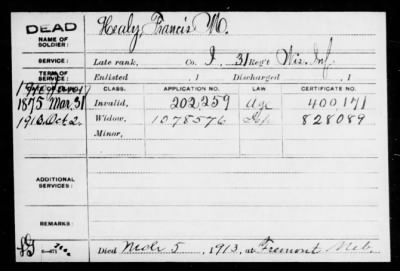 DEAD
NAME OF SOLDIER: Healy, Francis M.
SERVICE: Late rank, Co. I, 31 Reg't Wis. Inf.
TERM OF SERVICE: Enlisted , 1 Discharged , 1
CLASS. APPLICATION NO. LAW CERTIFICATE NO.
1875 Mar. 31 Invalid, 202,259 400171
1913 Oct 2 Widow, 1078576 828089
Minor,
ADDITIONAL SERVICES:
REMARKS:
Died 5, 1913, at Fremont Neb.